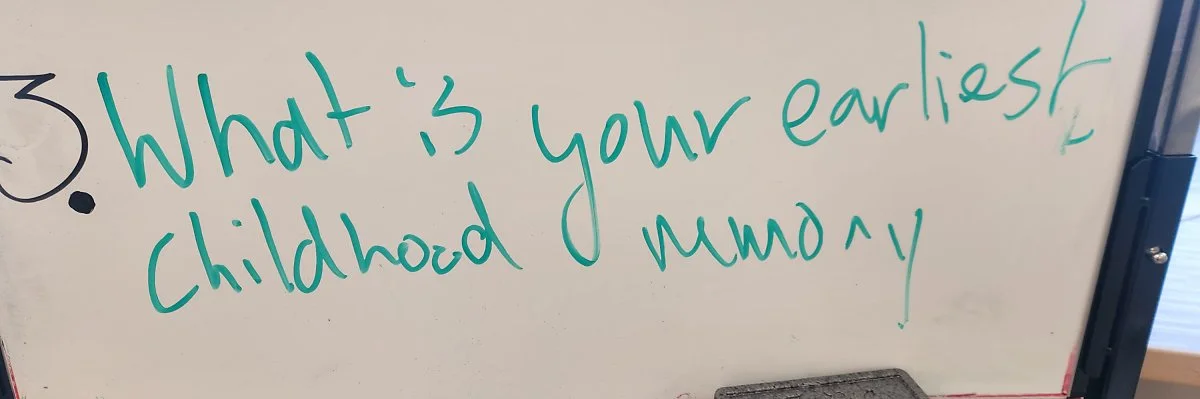 3. What is your earliest
childhood memory